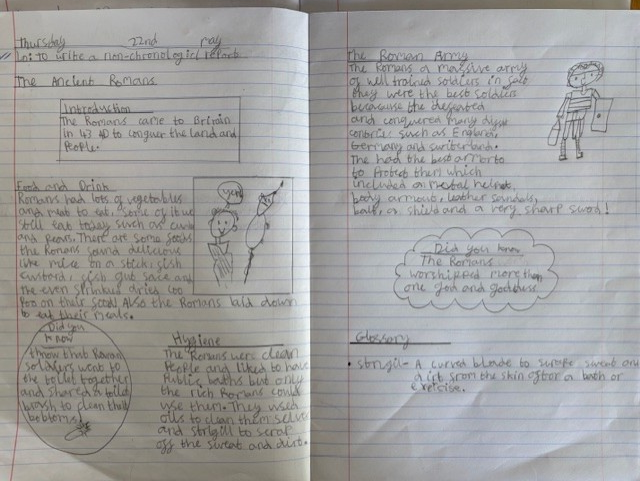 Thursday 22nd may
Loi to write a non-chronological report
The Ancient Romans
Introduction
The Romans came to Britain
in 43 AD to conquer the land and
People.
Food and Drink
Romans had lots of vegetables
and meat to eat. Some of it we
still eat today such as
and pears. There are some foods
the Romans found delicious
like mice on a stick, fish
custard, fish gut sauce and
the even sprinkled dried
Poo on their food! Also the Romans laid down
to eat their meals.
yum
Did you
know
I know that Roman
soldiers went to
the toilet together
and shared a toilet
brush to clean their
bottoms!
Hygiene
The Romans were clean
People and liked to have
Public baths but only
the rich Romans could
use them. They used
oils to clean them selves
and strigil to scrap
off the sweat and dirt.
The Roman Army
The Romans a massive army
of well trained soldiers in fact
they were the best soldiers
because the defeated
and conquered many
such as England,
Germany and
The had the best armor to
to Protect them which
included a metal helmet,
body armour, leather sandals,
belt, a shield and a very sharp sword!
Did you know
The Romans
worshipped more than
one god and goddess
Glossary
• strigil - A curved blade to scrape sweat and
dirt from the skin after a bath or
exercise.